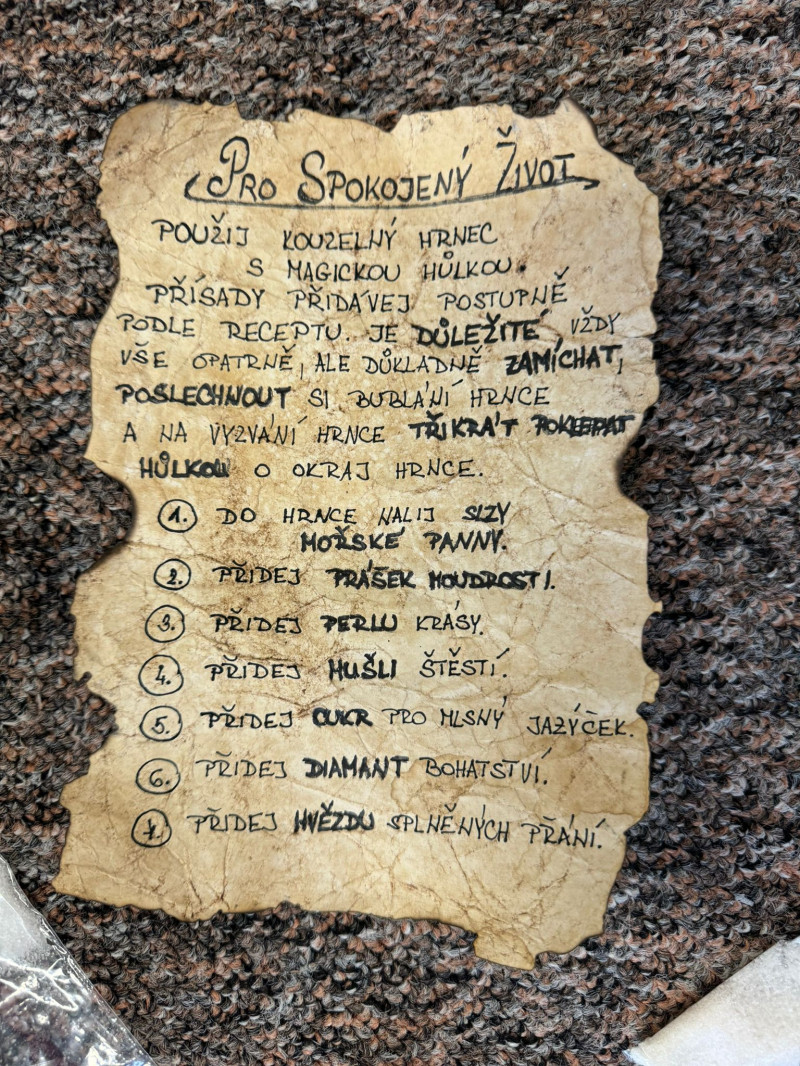 Pro Spokojený Život
Použij kouzelný hrnec
s magickou hůlkou.
Přísady přidávej postupně
podle receptu. Je důležité vždy
vše opatrně, ale důkladně zamíchat,
poslechnout si bublání hrnce
a na vyzvání hrnce třikrát poklepat
hůlkou o okraj hrnce.
1. Do hrnce nalij slzy
mořské panny.
2. Přidej prášek moudrosti.
3. Přidej perlu krásy.
4. Přidej mušli štěstí.
5. Přidej cukr pro mlsný jazýček.
6. Přidej diamant bohatství.
7. Přidej hvězdu splněných přání.